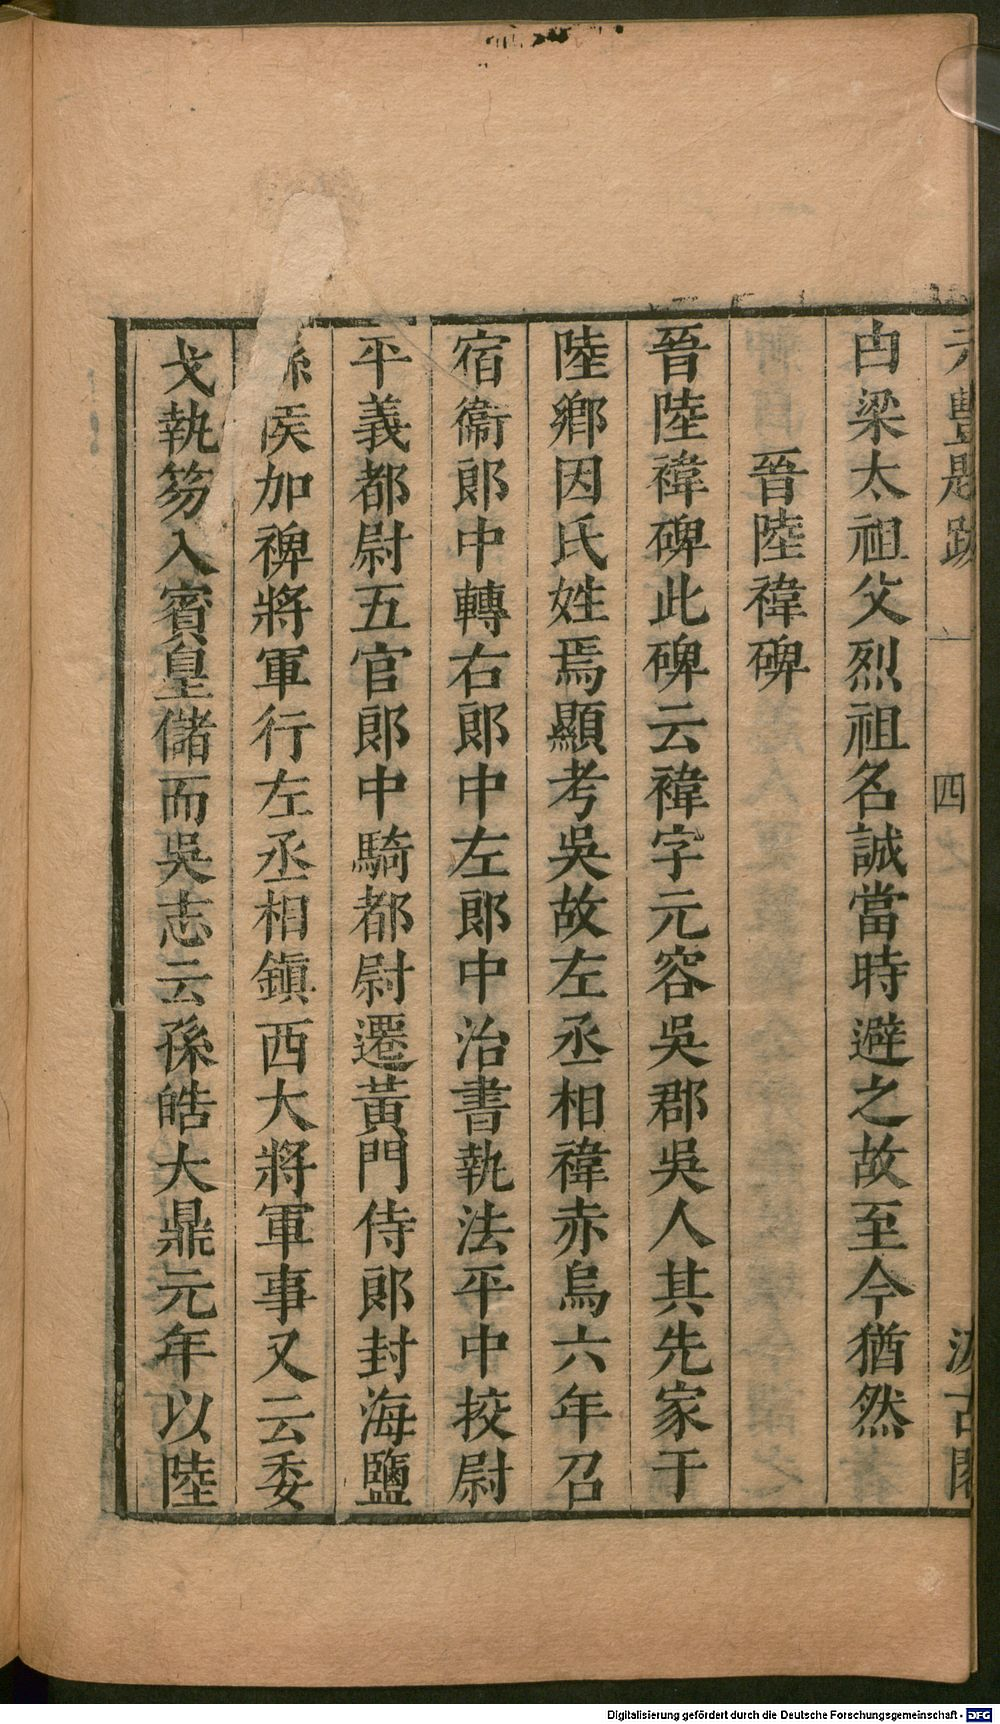 元豐題跋 一 四 汲古閣
白梁太祖父烈祖名誠當時避之故至今猶然
晉陸褘碑
晉陸褘碑此碑云褘字元容吳郡吳人其先家于
陸鄉因氏姓焉顯考吳故左丞相褘赤烏六年召
宿衞郎中轉右郎中左郎中治書執法平中挍尉
平義都尉五官郎中騎都尉遷黃門侍郎封海鹽
縣侯加裨將軍行左丞相鎮西大將軍事又云委
戈執笏入賓皇儲而吳志云孫皓大鼎元年以陸
Digitalisierung gefördert durch die Deutsche Forschungsgemeinschaft - DFG